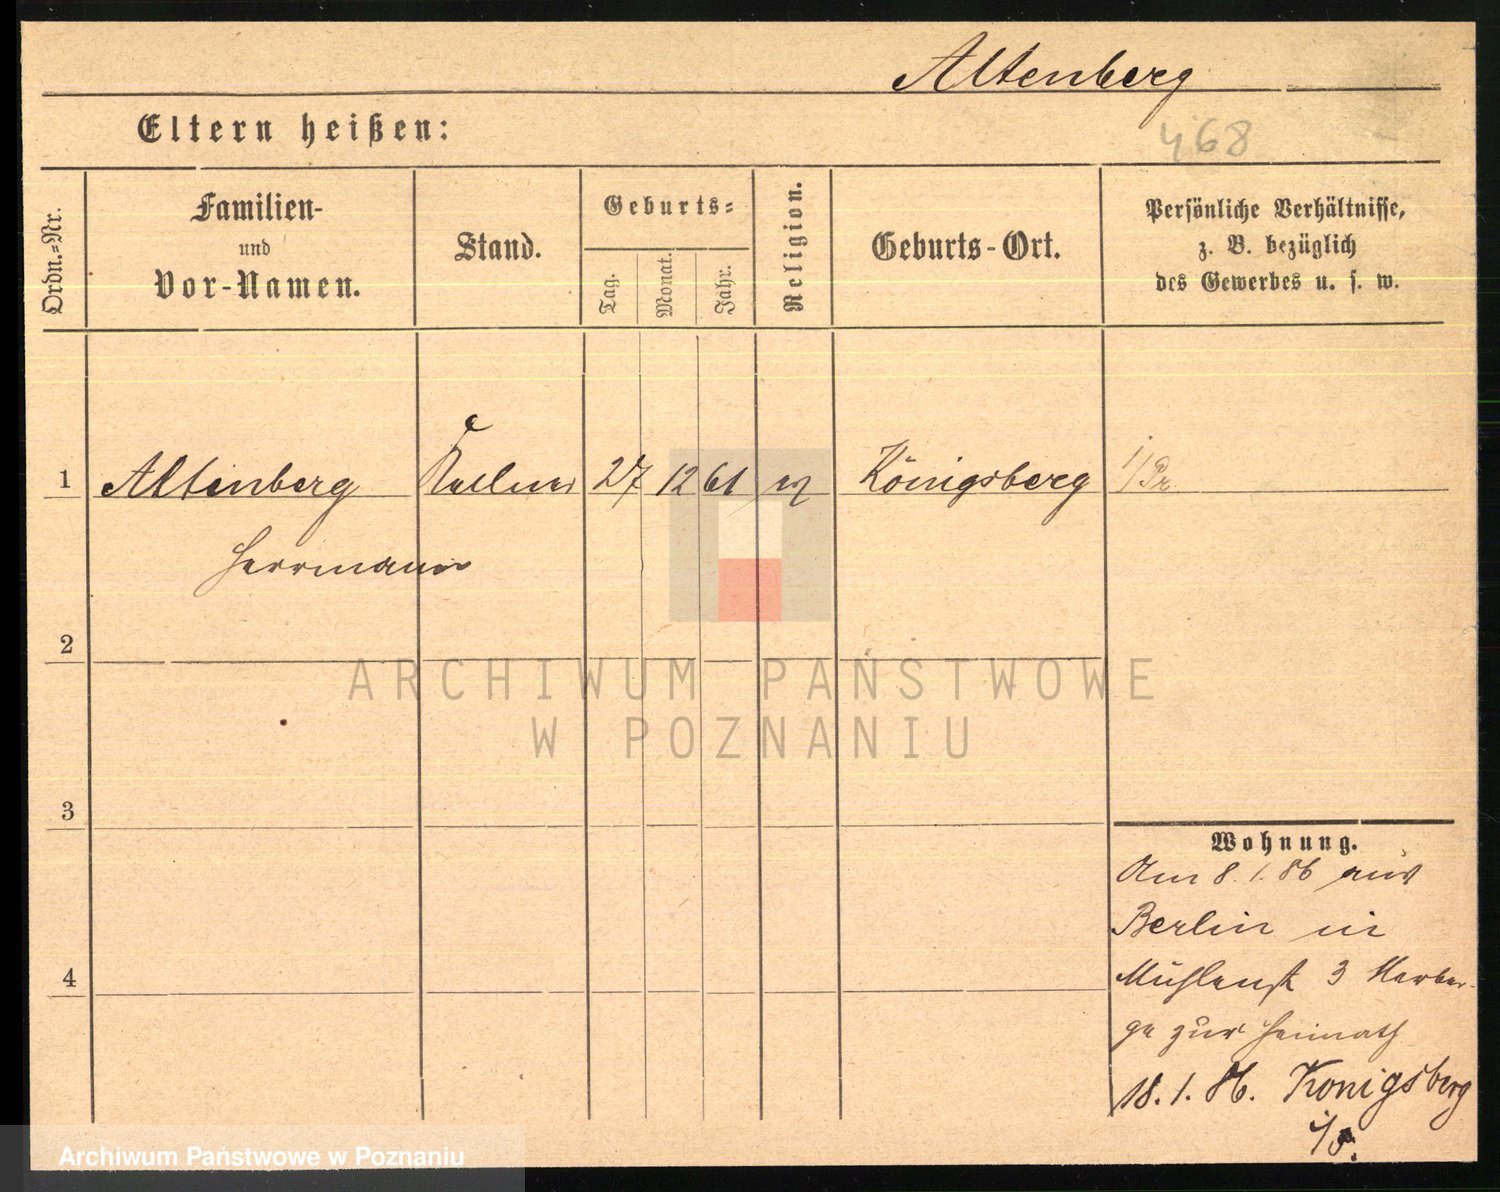 Altenberg
Eltern heißen:
468
Ordn.-Nr.
Familien-
und
Vor-Namen.
Stand.
Geburts-
Tag.
Monat.
Jahr.
Religion.
Geburts-Ort.
Persönliche Verhältnisse,
z. B. bezüglich
des Gewerbes u. s. w.
1 Altenberg Kellner 27 12 61 Königsberg i/Pr
Herrmann
2
3
4
ARCHIWUM PAŃSTWOWE
W POZNANIU
Wohnung.
Am 8. 1. 86 aus
Berlin in
Mühlenst 3 Herber-
ge zur Heimath
18. 1. 86. Konigsberg
i/P.
Archiwum Państwowe w Poznaniu